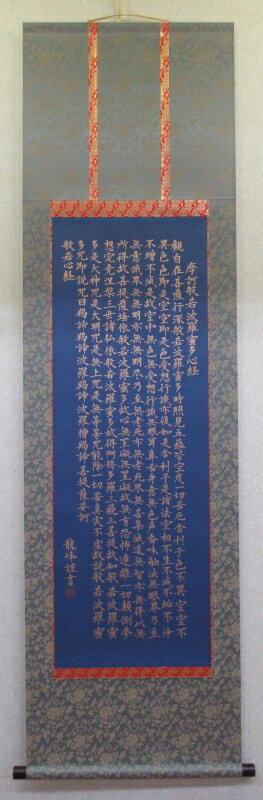 摩訶般若波羅蜜多心経
観自在菩薩行深般若波羅蜜多時照見五蘊皆空度一切苦厄舎利子色不異空空不
異色色即是空空即是色受想行識亦復如是舎利子是諸法空相不生不滅不垢不浄
不増不減是故空中無色無受想行識無眼耳鼻舌身意無色声香味触法無眼界乃至
無意識界無無明亦無無明尽乃至無老死亦無老死尽無苦集滅道無智亦無得以無
所得故菩提薩埵依般若波羅蜜多故心無罣礙無罣礙故無有恐怖遠離一切顛倒夢
想究竟涅槃三世諸仏依般若波羅蜜多故得阿耨多羅三藐三菩提故知般若波羅蜜
多是大神呪是大明呪是無上呪是無等等呪能除一切苦真実不虚故説般若波羅蜜
多呪即説呪曰羯諦羯諦波羅羯諦波羅僧羯諦菩提薩婆訶
般若心経
龍峰謹書